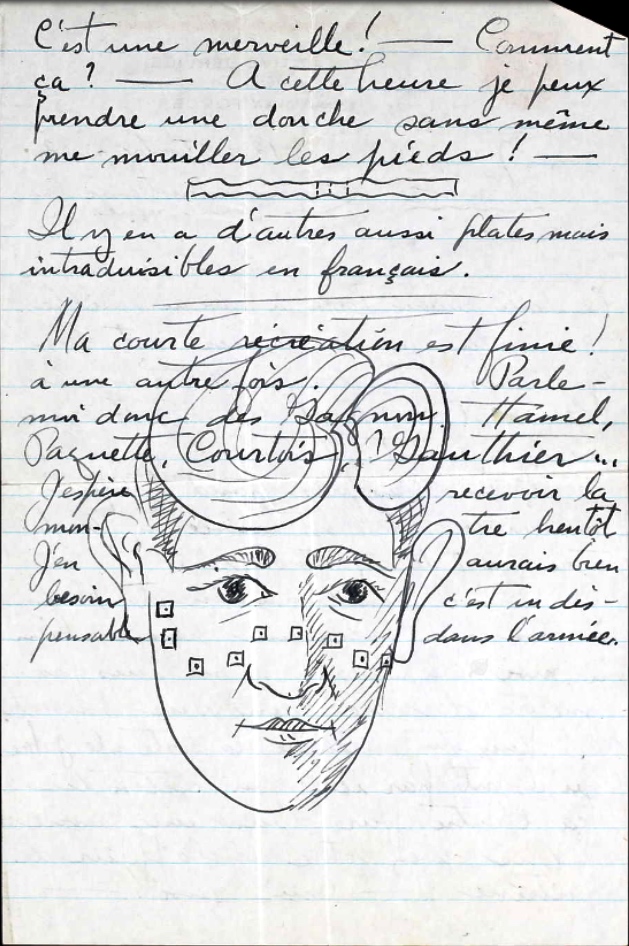 C'est une merveille! — Comment
ça? — A cette heure je peux
prendre une douche sans même
me mouiller les pieds! —
Il y en a d'autres aussi plates mais
intraduisibles en français.
Ma courte récréation est finie!
à une autre fois. Parle-
moi donc des Gagnon, Hamel,
Paquette, Courtois, Gauthier...
J'espère recevoir la
mon- tre bientôt
J'en aurais bien
besoin c'est indis-
pensable dans l'armée.